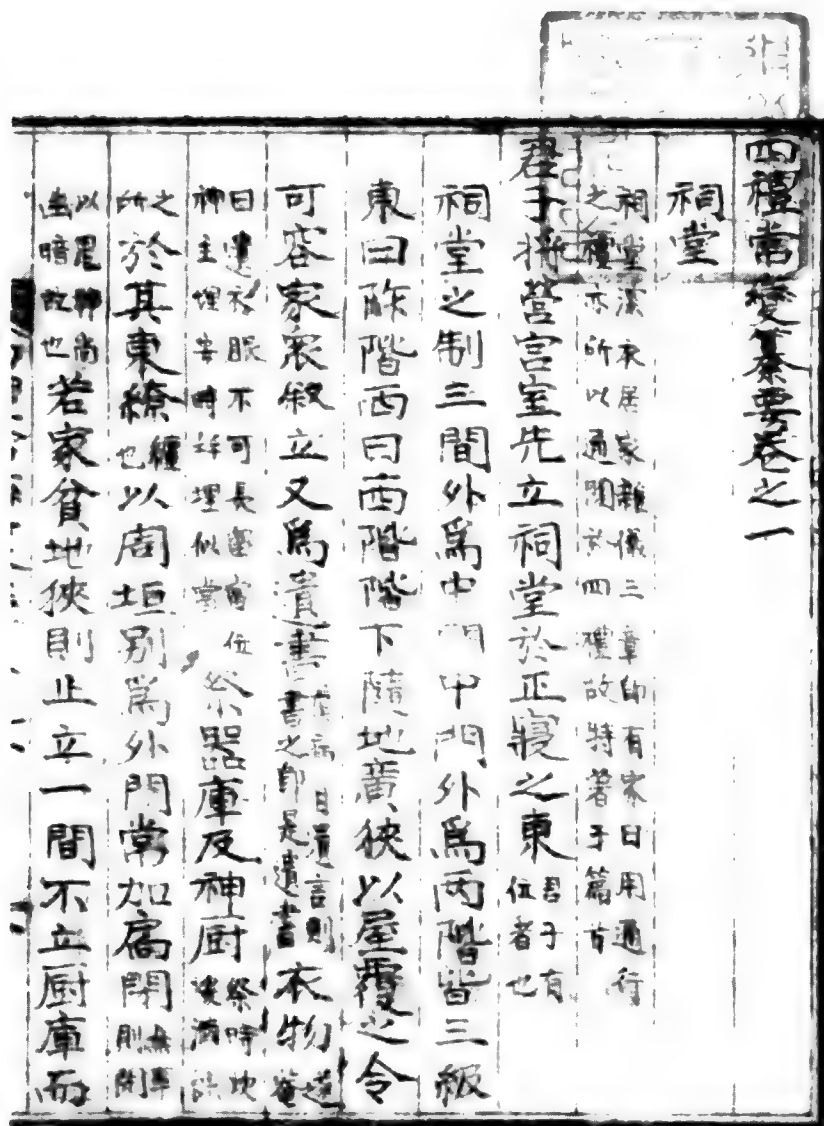 四禮常變纂要卷之一
祠堂
祠堂深衣居家雜儀三章即有家日用通行
之禮亦所以通關於四禮故特著于篇首
君子將營宮室先立祠堂於正寢之東 君子有位者也
祠堂之制三間外爲中門中門外爲兩階皆三級
東曰阼階西曰西階階下隨地廣狹以屋覆之令
可容家衆叙立又爲遺書 病 目遺言則書之即是遺書 衣物 遂菴
曰遺衣服不可長 位神主埋安時 埋似當 祭器庫及神厨 祭時炊
之所於其東繚 纏也 以周垣別爲外門常加扃閉 無事則閉
以鬼神尚幽暗故也 若家貧地狹則止立一間不立厨庫而